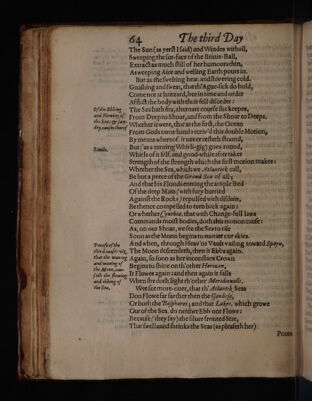 64 The third Day
The Sun (as yerst I said) and Windes withall,
Sweeping the sur-face of the Brinie-Ball,
Extract as much still of her humours thin,
As weeping Aire and welling Earth pours in.
But as the swelting heat, and shivering cold,
Gnashing and sweat, that th'Ague-sick do hold,
Come not at hazzard, but in time and order
Afflict the body with their fell disorder:
Of the Ebbing and Flowing of the Sea: &
The Sea hath fits, alternate course she keepes,
From Deep to Shoar, and from the Shoar to Deeps.
Whether it were, that at the first, the Ocean
From Gods owne hand receiv'd this double Motion,
By means whereof it never resteth stound,
Simile.
But (as a turning Whirli-gig) goes round,
Whirls of it self, and good-while after takes
Strength of the strength which the first motion makes:
Whether the Sea, which we Atlantick call,
Be but a peece of the Grand Sea of all;
And that his Floods entring the ample Bed
Of the deep Main (with fury hurried
Against the Rocks) repulsed with disdain,
Be thence compelled to turn back again:
Or whether Cynthia, that with Change-full laws
Commands moist bodies, doth this motion cause:
As, on our Shoar, we see the Sea to rise
Soon as the Moon begins to mount our skies.
Proofes of the third cause: viz. that the waxing and waning of the Moon, causeth the flowing and ebbing of the Sea.
And when, through Heav'ns Vault vailing toward Spayn,
The Moon descendeth, then it Ebbs again.
Again, so soon as her inconstant Crown
Begins to shine on th'other Horizon,
It Flowes again: and then again it falls
When she doth light th'other Meridionals.
Wee see more-over, that th'Atlantik Seas
Doo Flowe far farther then the Genoese,
Or both the Bosphores; and that Lakes, which growe
Out of the Sea, do neither Ebb nor Flowe:
Because (they say) the silver-fronted Star,
That swells and shrinks the Seas (as pleaseth her)
Pours